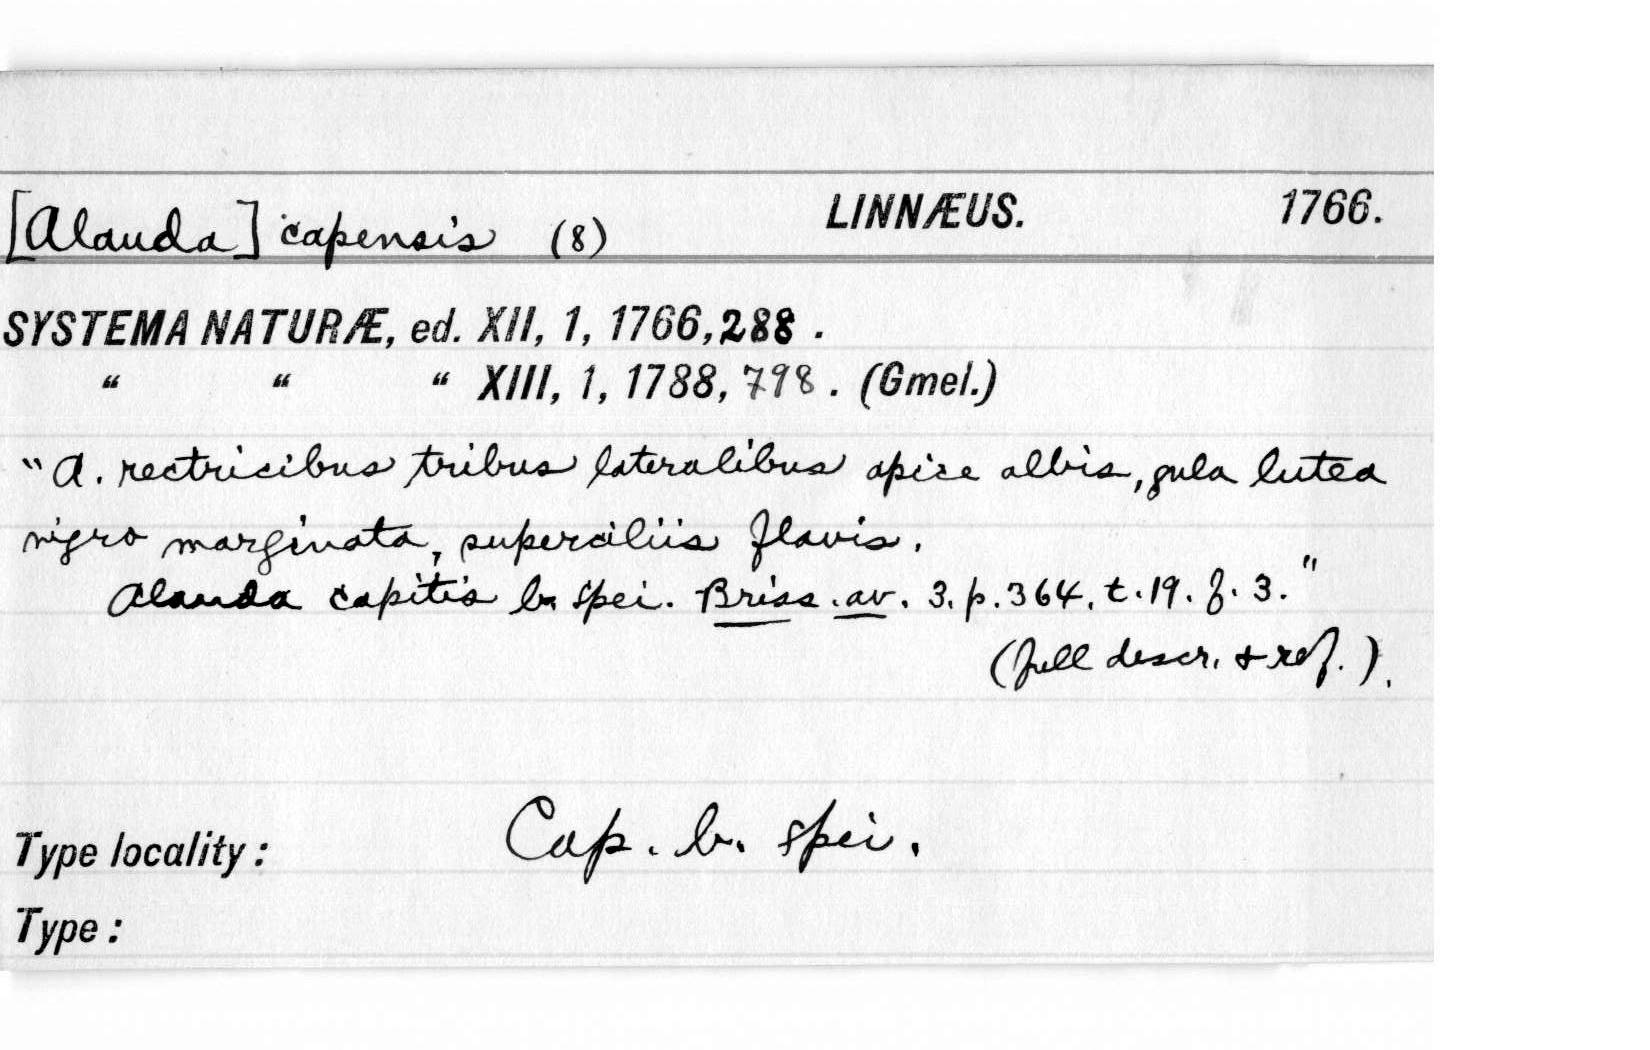 [Alauda] capensis (8) LINNÆUS. 1766.
SYSTEMA NATURÆ, ed. XII, 1, 1766, 288 .
“ “ “ XIII, 1, 1788, 798 . (Gmel.)
"A. rectricibus tribus lateralibus apice albis, gula lutea
nigro marginata, superciliis flavis.
Alauda capitis b. spei. Briss. av. 3. p. 364. t. 19. f. 3."
(full descr. & ref.).
Type locality : Cap. b. spei.
Type :